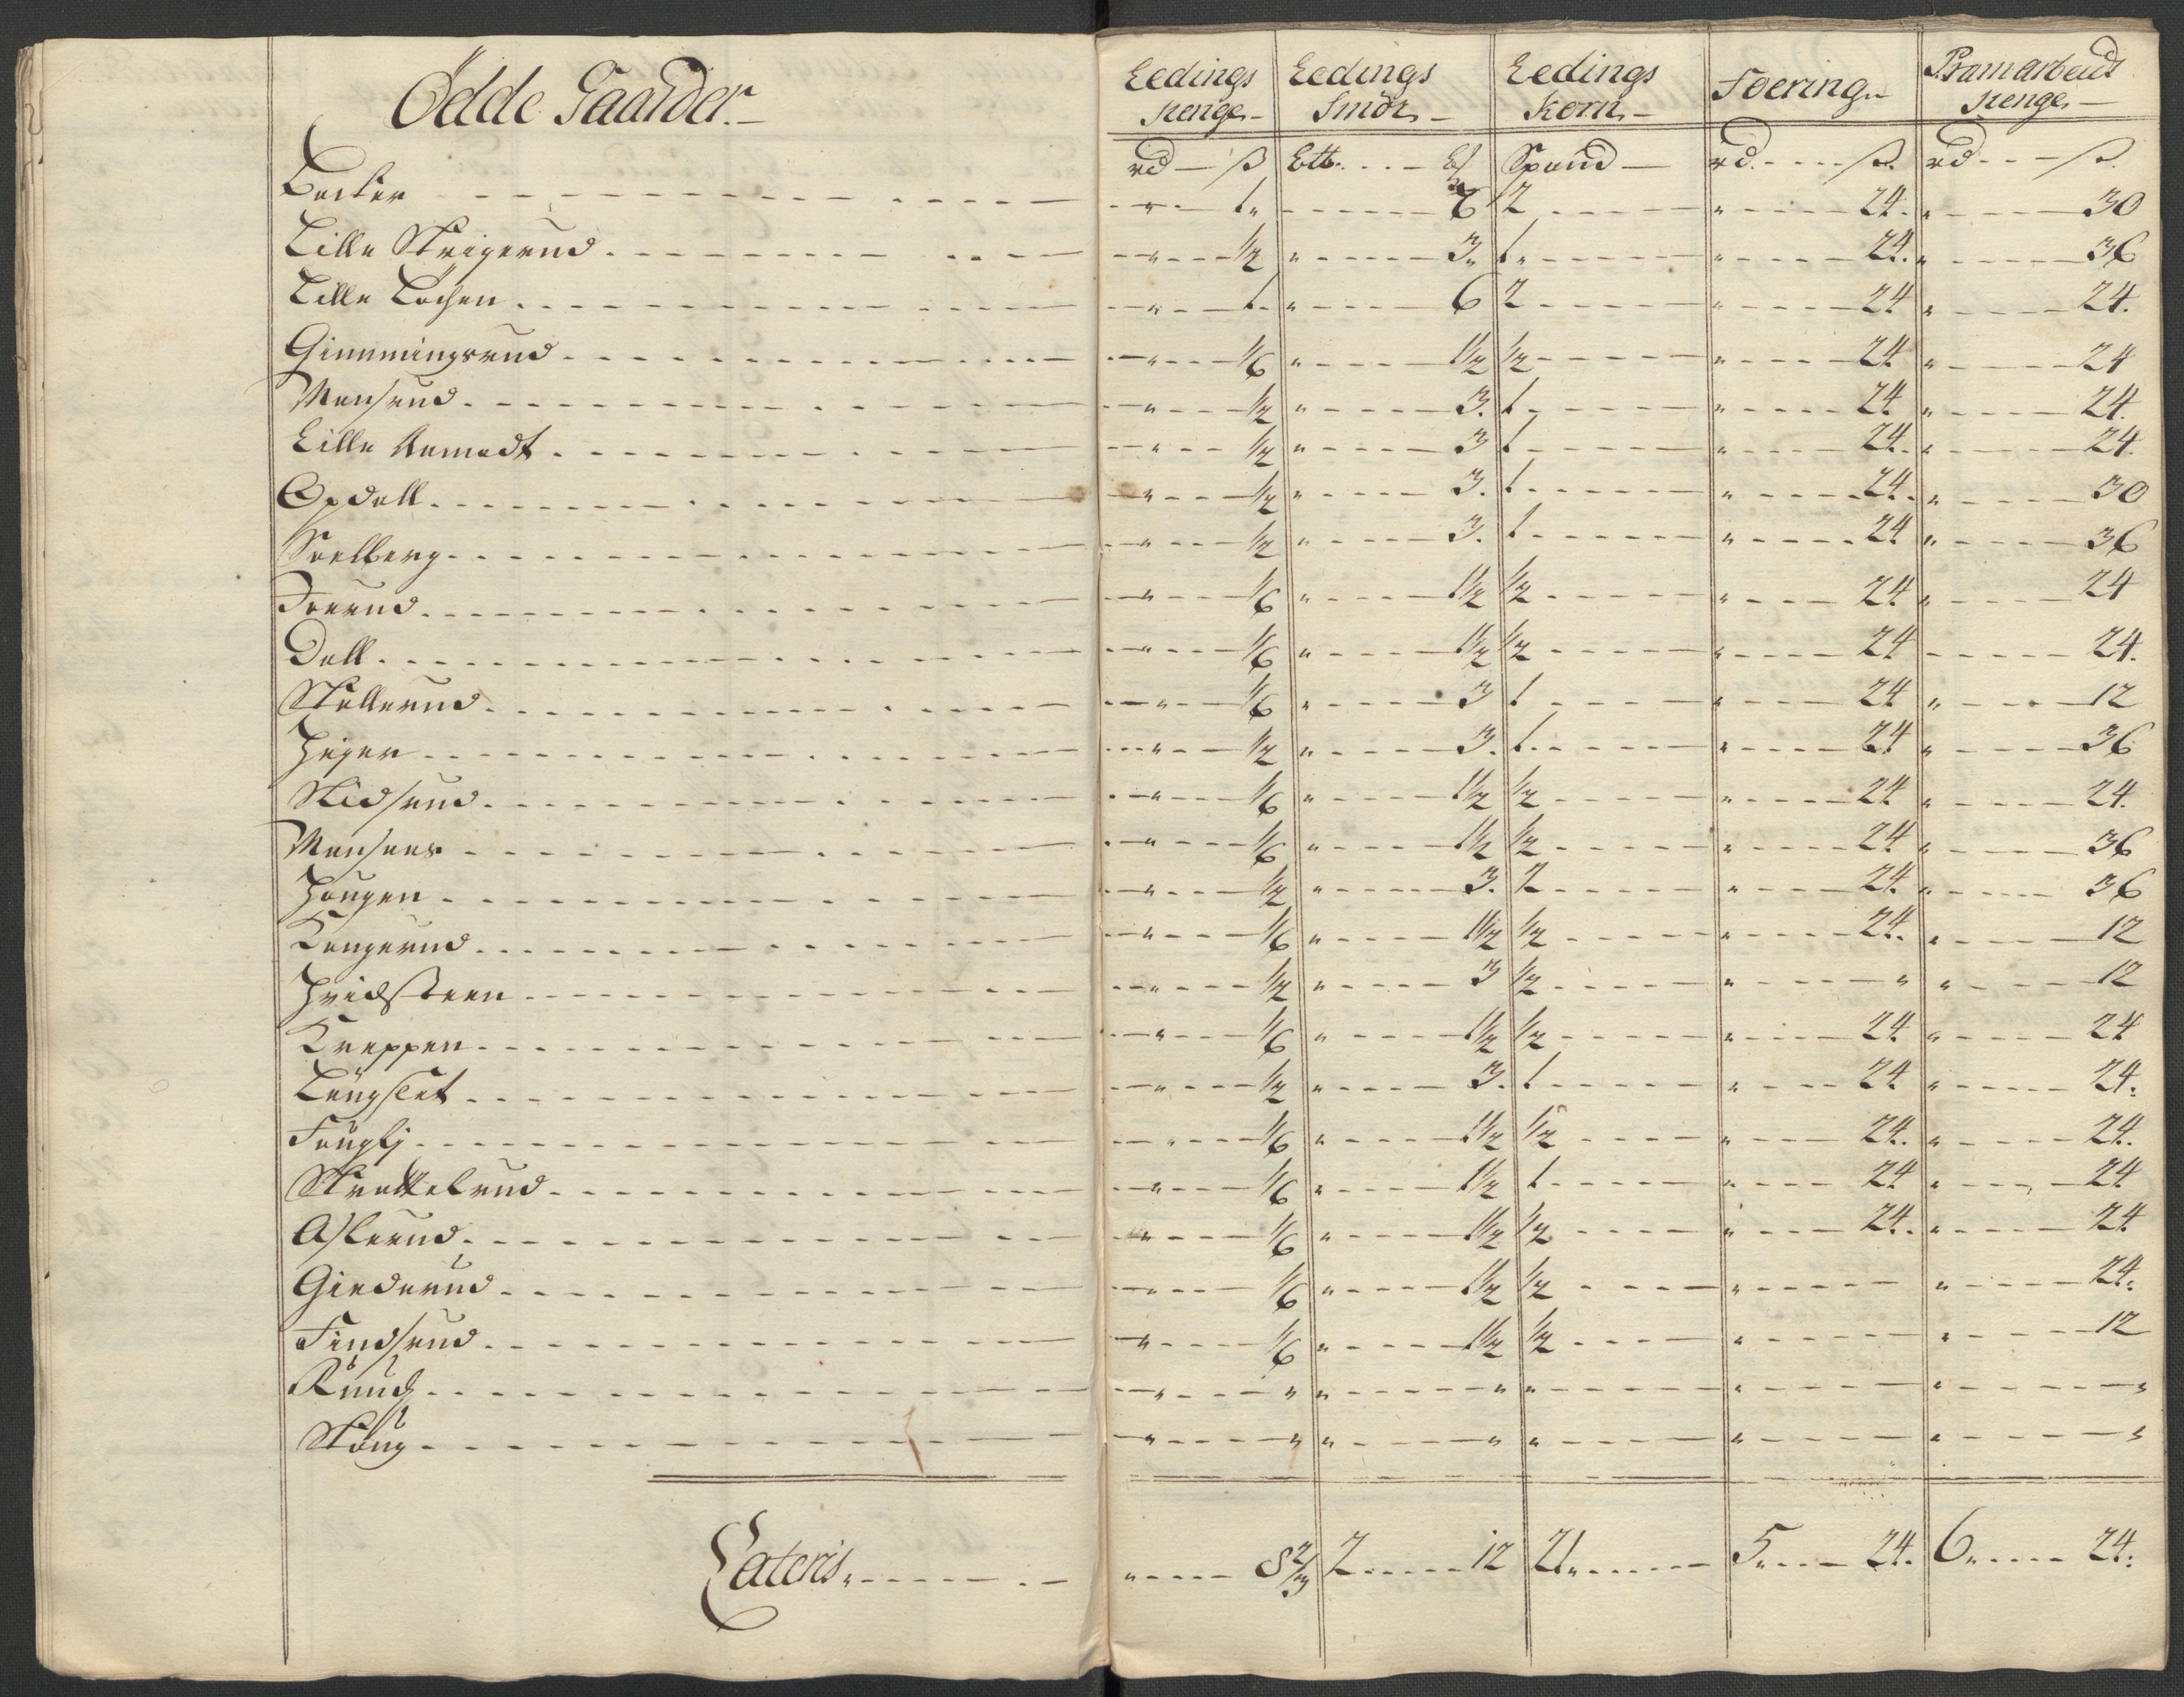 Ödde Gaarder.
Leedings Penge Leedings Smör Leedings Korn Foering Pramarbeids Penge
rd ß Ett. Spand rd ß rd ß
Becker " 1 6 2 " 24 " 30
Lille Skrigerud " 1/2 " 3 1 " 24 " 36
Lille Löchen " 1 " 6 2 " 24 " 24
Gimmingsrud " 1/6 " 1 1/2 1/2 " 24 " 24
Monsrud " 1/2 " 3 1 " 24 " 24
Lille Aamodt " 1/2 " 3 1 " 24 " 24
Opdall " 1/2 " 3 1 " 24 " 30
Soelberg " 1/2 " 3 1 " 24 " 36
" 1/6 " 1 1/2 1/2 " 24 " 24
Dall " 1/6 " 1 1/2 1/2 " 24 24
Skallerud " 1/6 " 3 1 " 24 " 12
Heyer " 1/2 " 3 1 " 24 " 36
Skidsrud " 1/6 " 1 1/2 1/2 " 24 " 24
" 1/6 " 1 1/2 1/2 " 24 " 36
Hougen " 1/2 " 3 2 " 24 " 36
Langerud " 1/6 " 1 1/2 1/2 " 24 " 12
Hvidsteen " 1/2 " 3 1/2 " " " 12
Kreppen " 1/6 " 1 1/2 1/2 " 24 " 24
Langslet " 1/2 " 3 1 " 24 " 24
Foughlj " 1/6 " 1 1/2 1/2 " 24 " 24
" 1/6 " 1 1/2 1 " 24 " 24
Aslerud " 1/6 " 1 1/2 1/2 " 24 " 24
Giederud " 1/6 " 1 1/2 1/2 " " 24
Findsrud " 1/6 " 1 1/2 1/2 " " 12
Ruud " " " " " " " "
Skoug " " " " " " " "
Lateris " 8 2/3 2 12 21 5 24 6 24